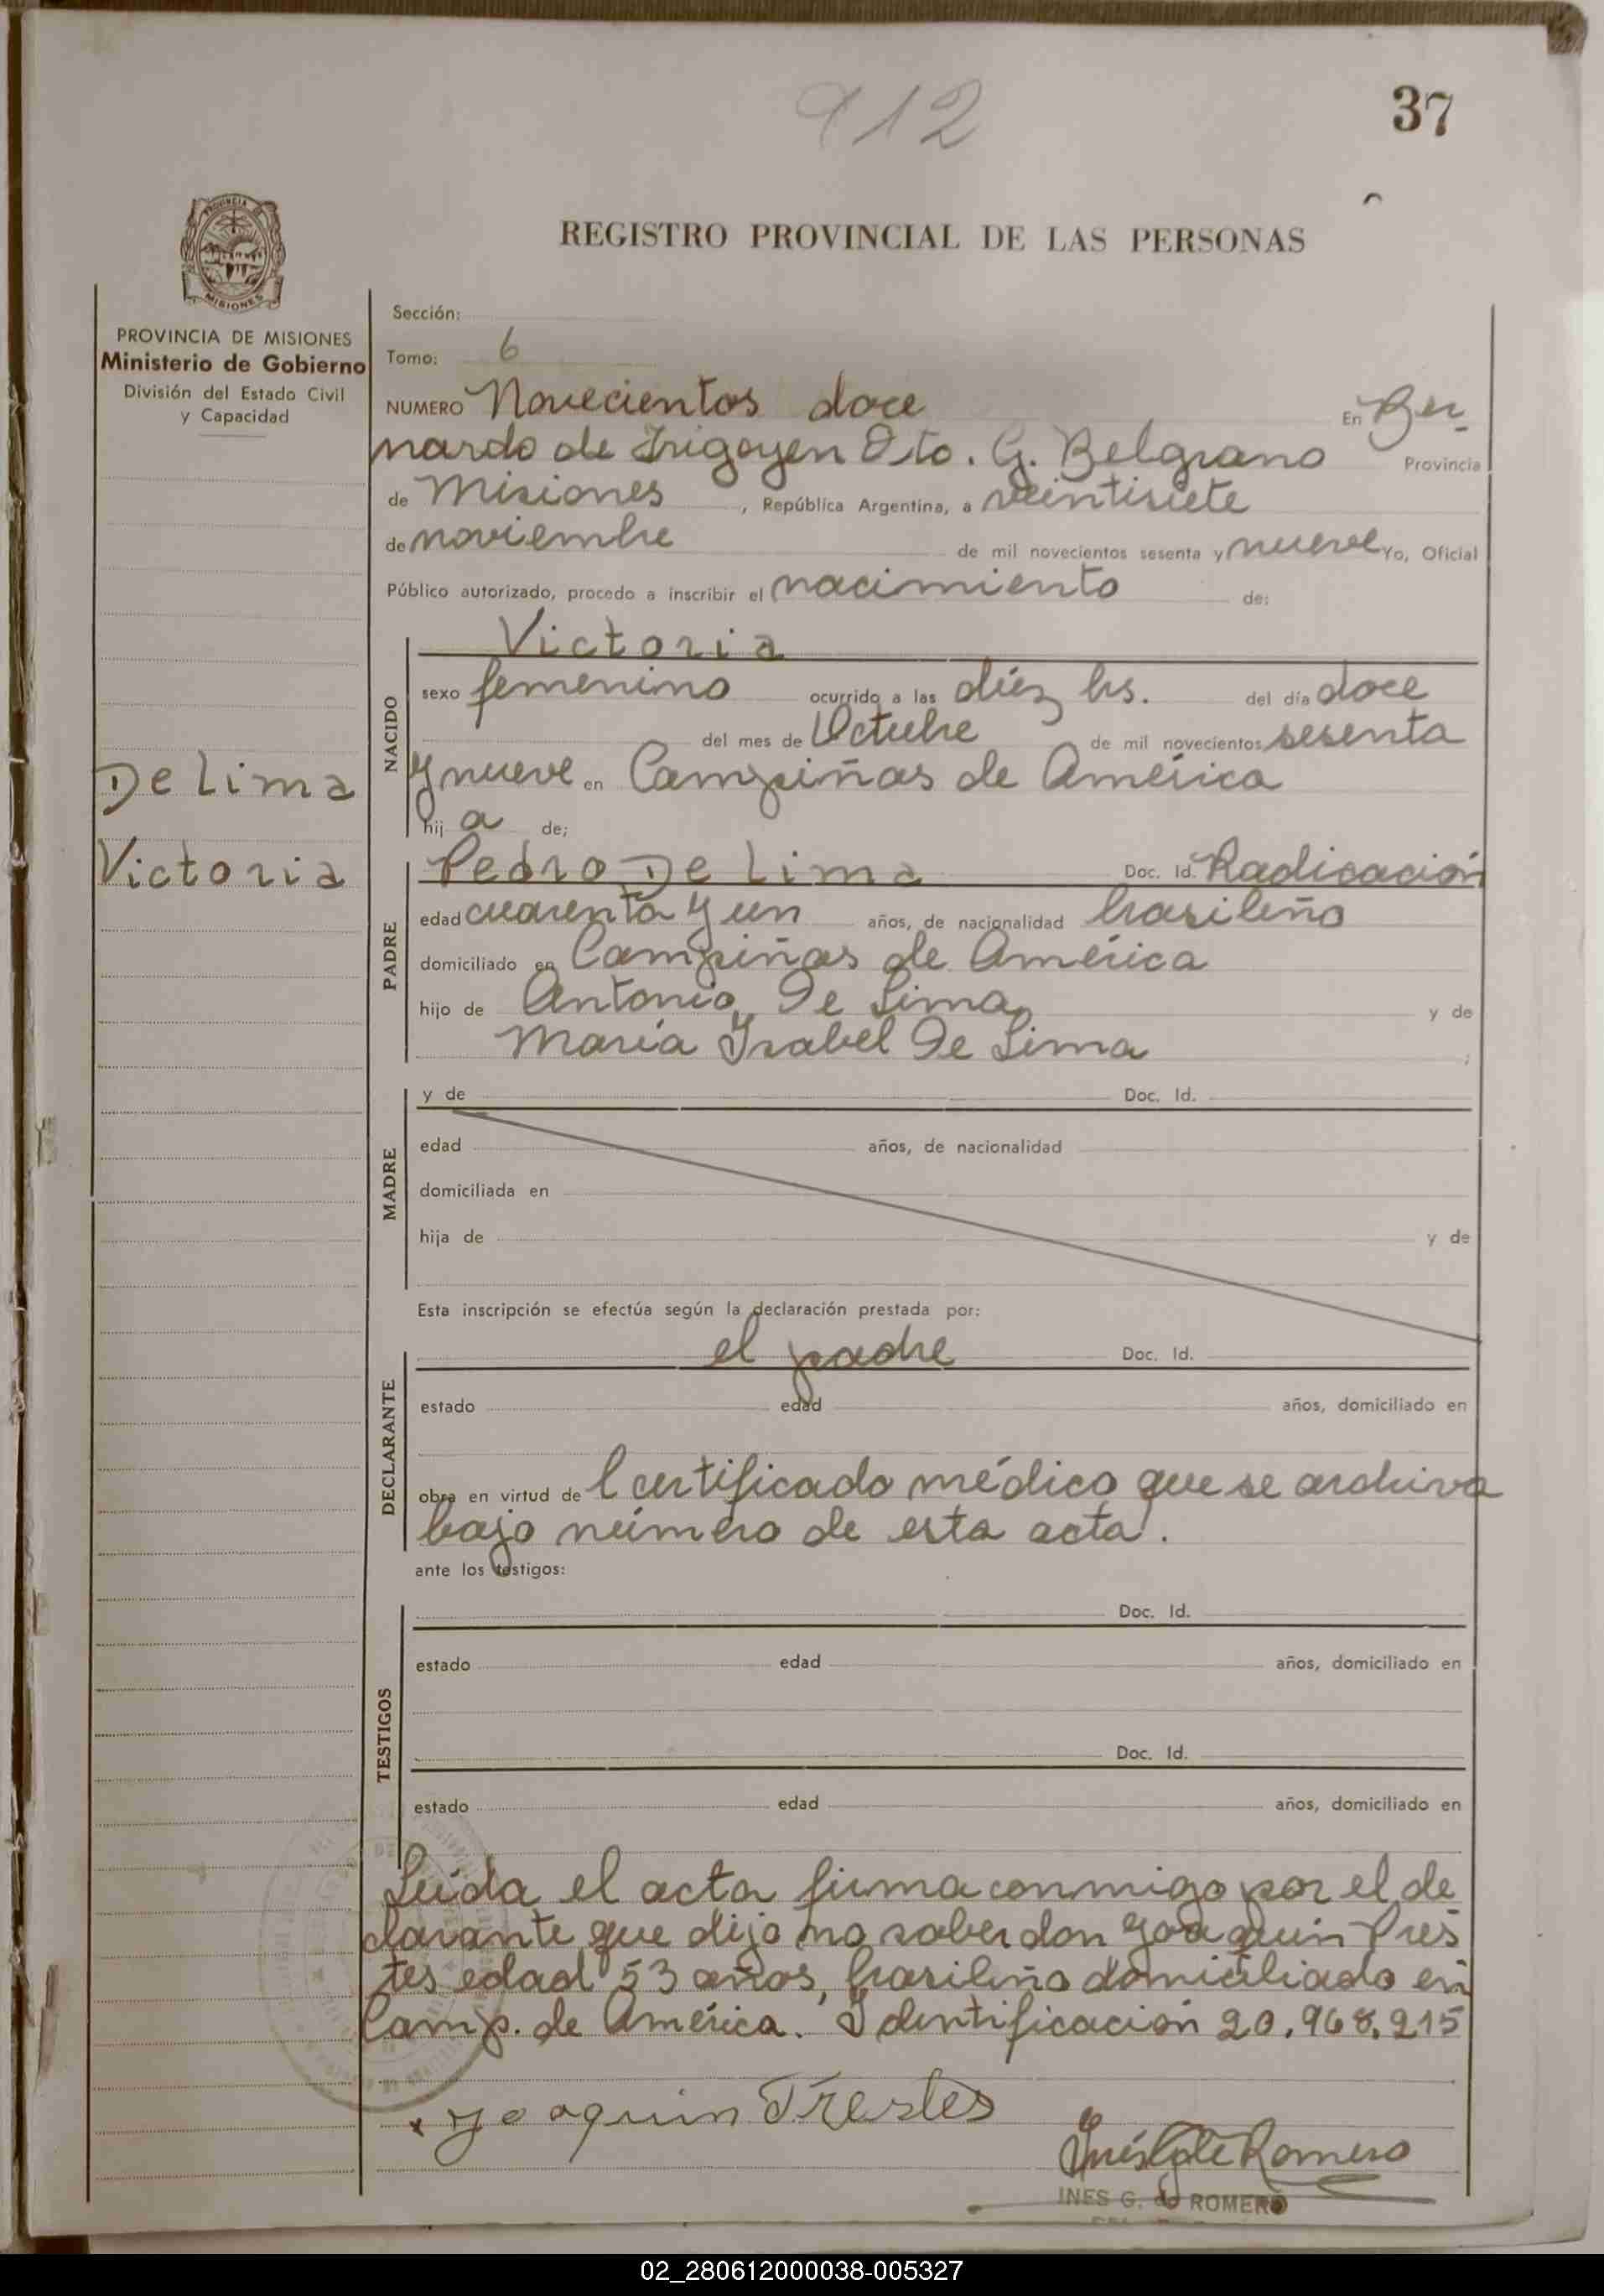 912
37
PROVINCIA DE
MISIONES
REGISTRO PROVINCIAL DE LAS PERSONAS
PROVINCIA DE MISIONES
Ministerio de Gobierno
División del Estado Civil
y Capacidad
Sección:
Tomo: 6
NUMERO Novecientos doce En Ber-
nardo de Irigoyen Dto. G. Belgrano Provincia
de Misiones, República Argentina, a veintisiete
de noviembre de mil novecientos sesenta y nueve Yo, Oficial
Público autorizado, procedo a inscribir el nacimiento de:
NACIDO
Victoria
sexo femenino ocurrido a las diez hs. del día doce
del mes de Octubre de mil novecientos sesenta
y nueve en Campiñas de América
hij a de;
De Lima
Victoria
PADRE
Pedro De Lima Doc. Id. Radicación
edad cuarenta y un años, de nacionalidad brasileño
domiciliado en Campiñas de América
hijo de Antonio De Lima y de
María Isabel De Lima ;
MADRE
y de Doc. Id.
edad años, de nacionalidad
domiciliada en
hija de y de
Esta inscripción se efectúa según la declaración prestada por:
DECLARANTE
el padre Doc. Id.
estado edad años, domiciliado en
obra en virtud de l certificado médico que se archiva
bajo número de esta acta.
ante los testigos:
TESTIGOS
Doc. Id.
estado edad años, domiciliado en
Doc. Id.
estado edad años, domiciliado en
Leída el acta firma conmigo por el de
clarante que dijo no saber don Joaquin Pres
tes edad 53 años, brasileño domiciliado en
Camp. de América. Identificación 20.968.215
x Joaquin Prestes
Inés G. de Romero
INES G. de ROMERO
02_280612000038-005327